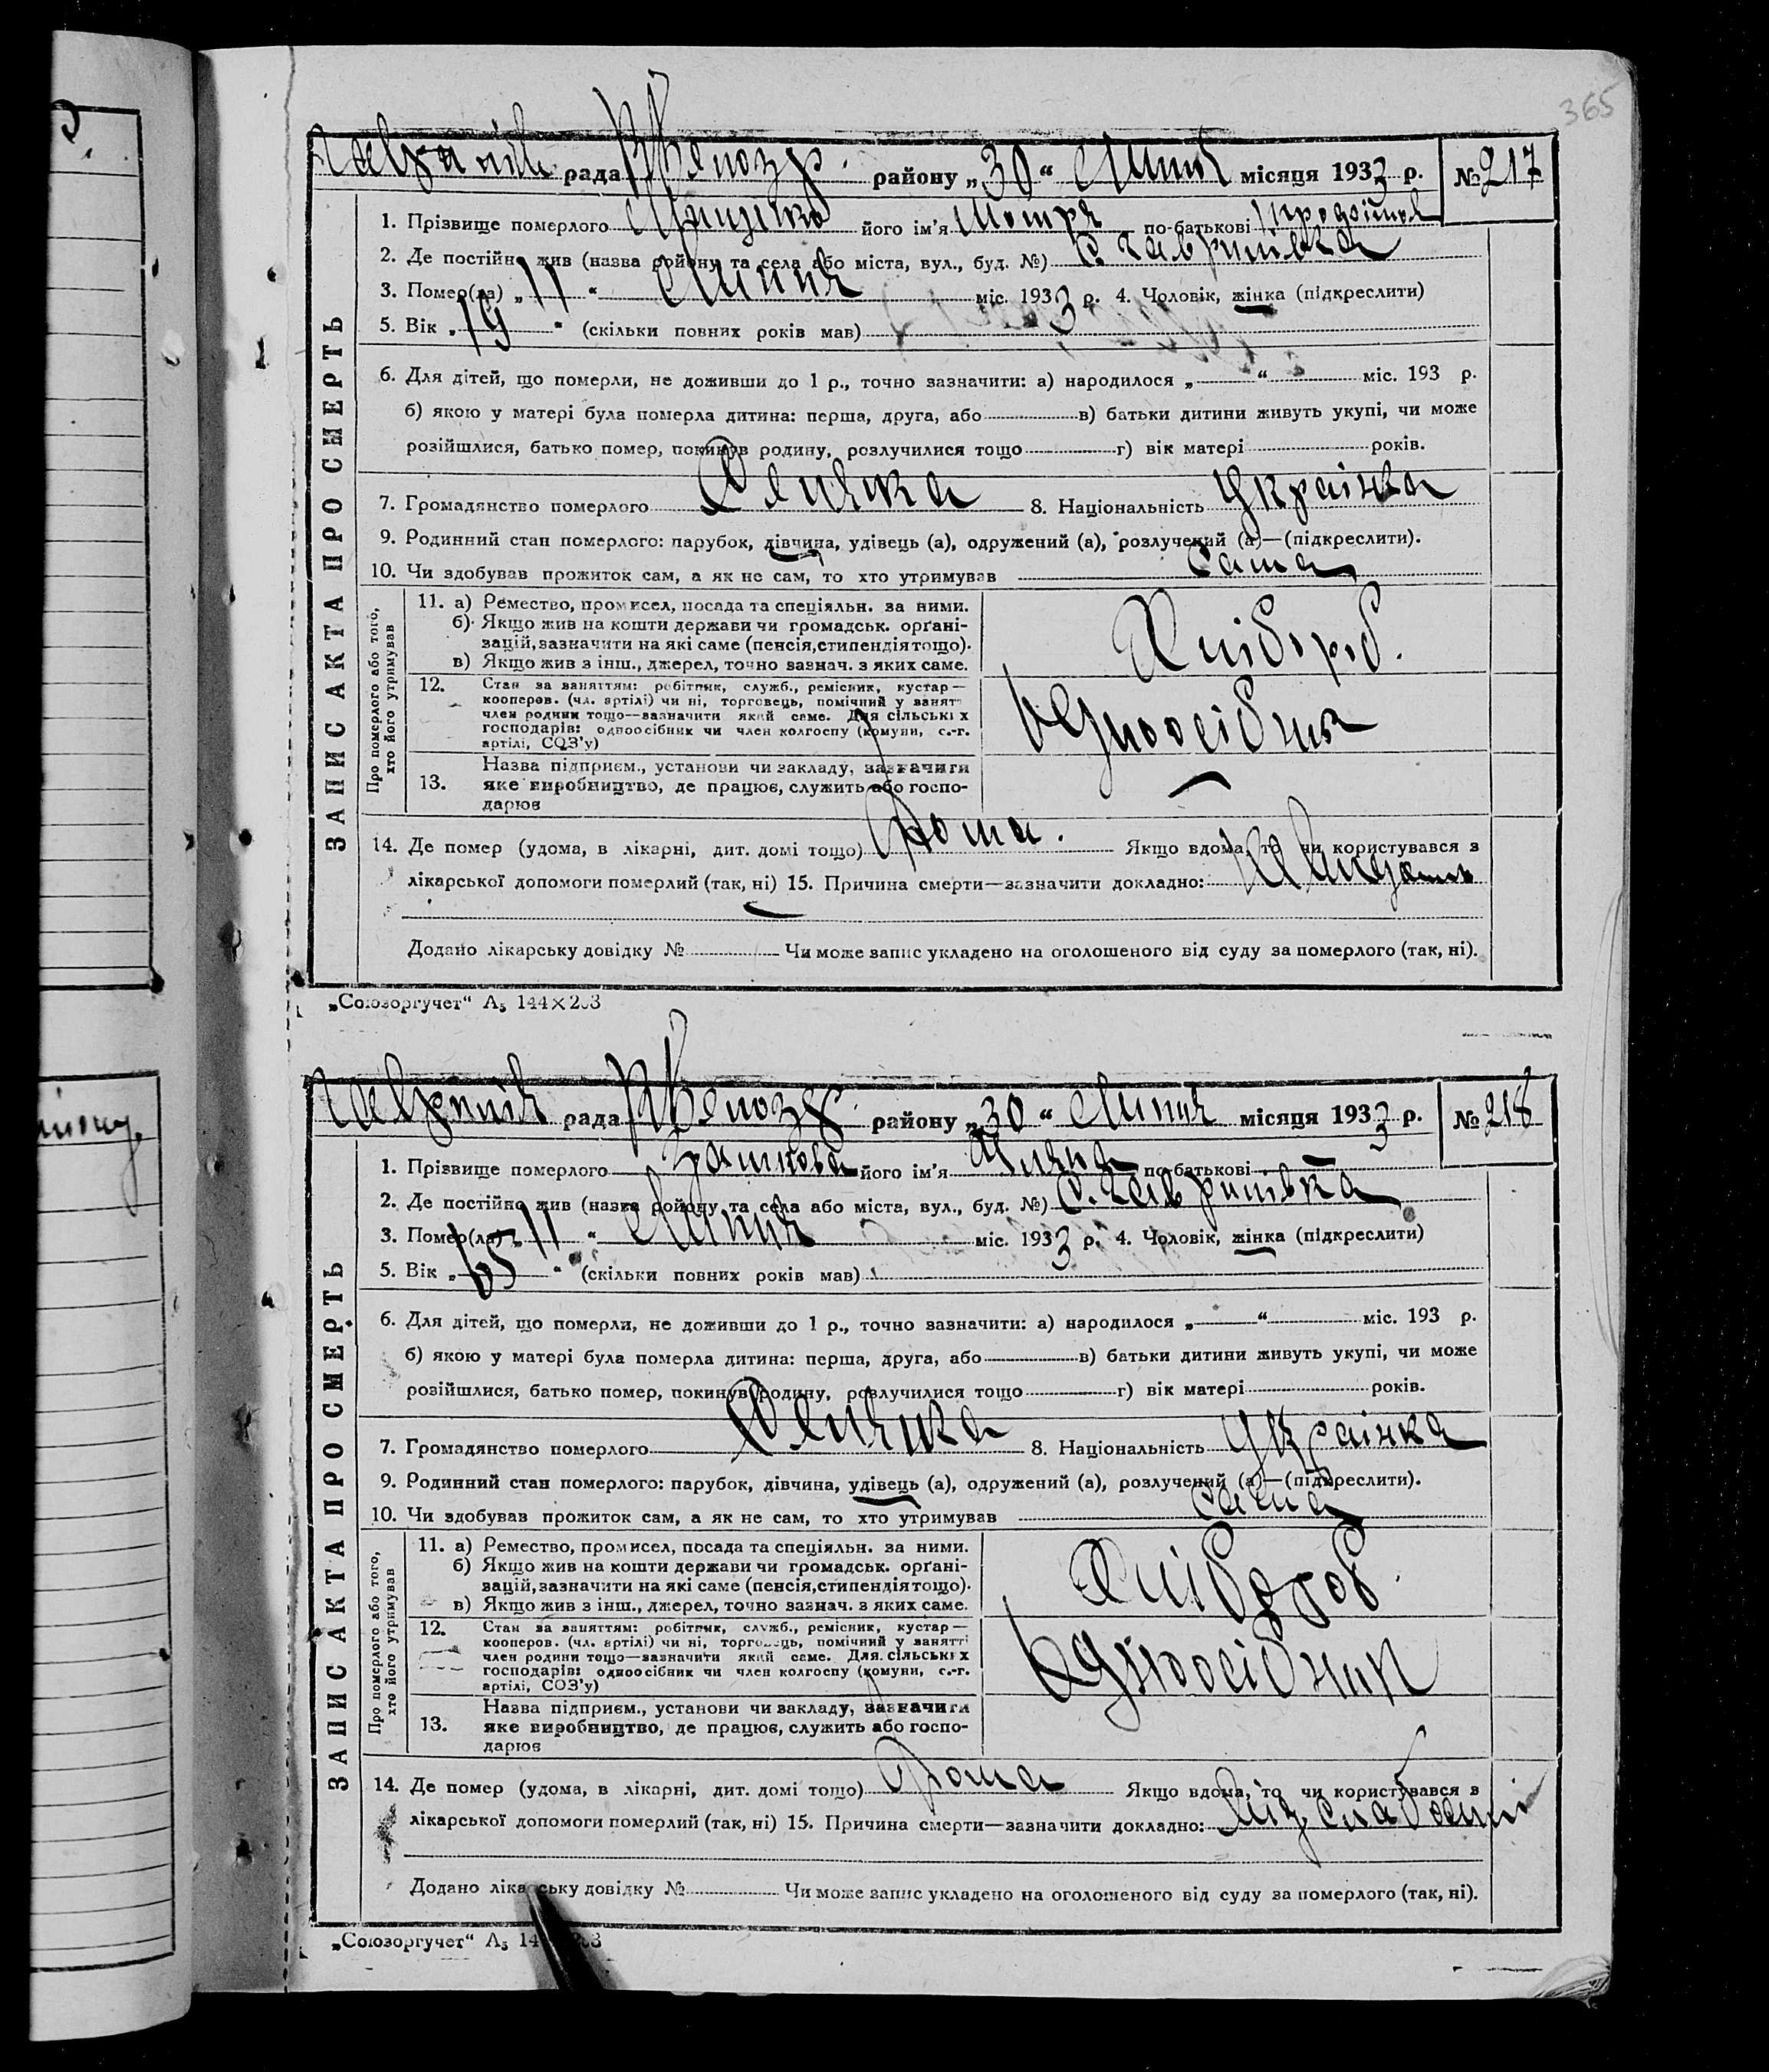 365
рада району „30“ Липня місяця 1933 р. № 217
1. Прізвище померлого його ім'я Мотря по-батькові
2. Де постійно жив (назва району та села або міста, вул., буд. №) с. Гаврилівка
3. Помер(ла) „11“ Липня міс. 1933 р. 4. Чоловік, жінка (підкреслити)
5. Вік „19“ (скільки повних років мав)
6. Для дітей, що померли, не доживши до 1 р., точно зазначити: а) народилося „ “ міс. 193 р.
б) якою у матері була померла дитина: перша, друга, або в) батьки дитини живуть укупі, чи може
розійшлися, батько помер, покинув родину, розлучилися тощо г) вік матері років.
7. Громадянство померлого Селянка 8. Національність Українка
9. Родинний стан померлого: парубок, дівчина, удівець (а), одружений (а), розлучений (а)—(підкреслити).
10. Чи здобував прожиток сам, а як не сам, то хто утримував сама
ЗАПИС АКТА ПРО СМЕРТЬ
Про померлого або того,
хто його утримував
11. а) Ремество, промисел, посада та спеціяльн. за ними.
б) Якщо жив на кошти держави чи громадськ. орґані-
зацій, зазначити на які саме (пенсія, стипендія тощо).
в) Якщо жив з інш., джерел, точно зазнач. з яких саме.
Хлібороб.
12. Стан за заняттям: робітник, служб., ремісник, кустар—
кооперов. (чл. артілі) чи ні, торговець, помічний у занятті
член родини тощо—зазначити який саме. Для сільських
господарів: одноосібник чи член колгоспу (комуни, с.-г.
артілі, СОЗ'у)
Одноосібник
13. Назва підприєм., установи чи закладу, зазначити
яке виробництво, де працює, служить або госпо-
дарює
14. Де помер (удома, в лікарні, дит. домі тощо) Дома. Якщо вдома, то чи користувався з
лікарської допомоги померлий (так, ні) 15. Причина смерти—зазначити докладно:
Додано лікарську довідку № Чи може запис укладено на оголошеного від суду за померлого (так, ні).
„Союзоргучет“ А₅ 144×203
рада району „30“ Липня місяця 1933 р. № 218
1. Прізвище померлого його ім'я по-батькові —
2. Де постійно жив (назва району та села або міста, вул., буд. №) с. Гаврилівка
3. Помер(ла) „11“ Липня міс. 1933 р. 4. Чоловік, жінка (підкреслити)
5. Вік „65“ (скільки повних років мав)
6. Для дітей, що померли, не доживши до 1 р., точно зазначити: а) народилося „ “ міс. 193 р.
б) якою у матері була померла дитина: перша, друга, або в) батьки дитини живуть укупі, чи може
розійшлися, батько помер, покинув родину, розлучилися тощо г) вік матері років.
7. Громадянство померлого Селянка 8. Національність Українка
9. Родинний стан померлого: парубок, дівчина, удівець (а), одружений (а), розлучений (а)—(підкреслити).
10. Чи здобував прожиток сам, а як не сам, то хто утримував сама
ЗАПИС АКТА ПРО СМЕРТЬ
Про померлого або того,
хто його утримував
11. а) Ремество, промисел, посада та спеціяльн. за ними.
б) Якщо жив на кошти держави чи громадськ. орґані-
зацій, зазначити на які саме (пенсія, стипендія тощо).
в) Якщо жив з інш., джерел, точно зазнач. з яких саме.
Хлібороб
12. Стан за заняттям: робітник, служб., ремісник, кустар—
кооперов. (чл. артілі) чи ні, торговець, помічний у занятті
член родини тощо—зазначити який саме. Для сільських
господарів: одноосібник чи член колгоспу (комуни, с.-г.
артілі, СОЗ'у)
Одноосібник
13. Назва підприєм., установи чи закладу, зазначити
яке виробництво, де працює, служить або госпо-
дарює
14. Де помер (удома, в лікарні, дит. домі тощо) Дома Якщо вдома, то чи користувався з
лікарської допомоги померлий (так, ні) 15. Причина смерти—зазначити докладно: Від слабості
Додано лікарську довідку № Чи може запис укладено на оголошеного від суду за померлого (так, ні).
„Союзоргучет“ А₅ 14